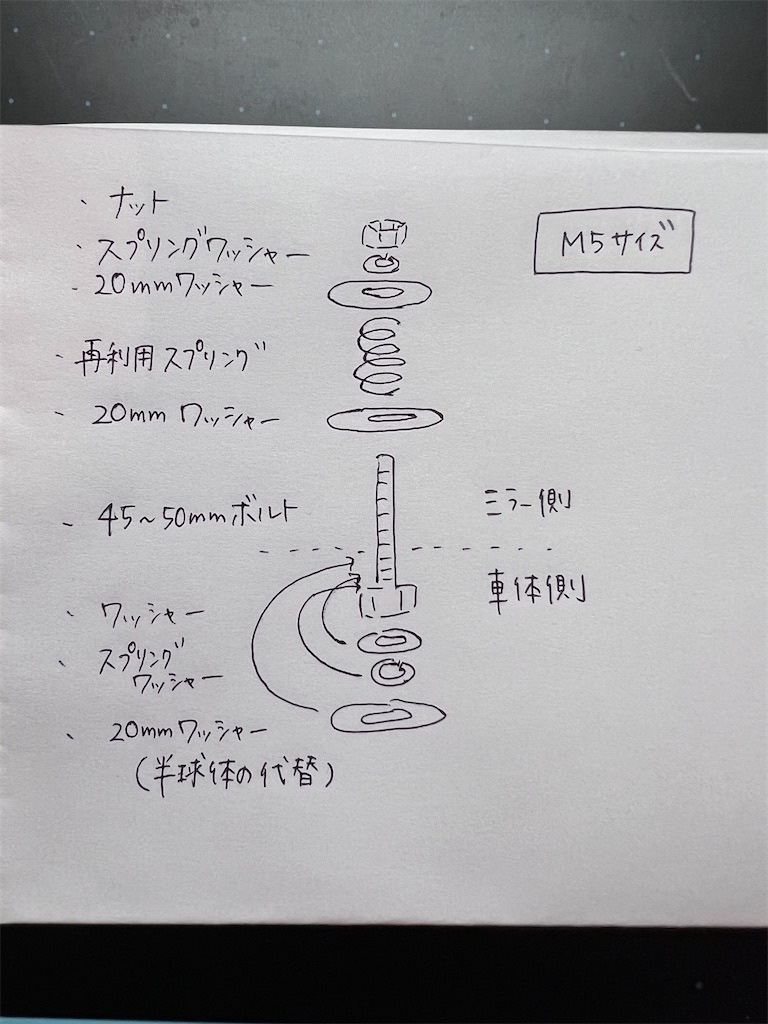 ・ナット
・スプリングワッシャー
・20mmワッシャー
M5サイズ
・再利用スプリング
・20mmワッシャー
・45~50mmボルト
ミラー側
車体側
・ワッシャー
・スプリング
ワッシャー
・20mmワッシャー
(半球体の代替)